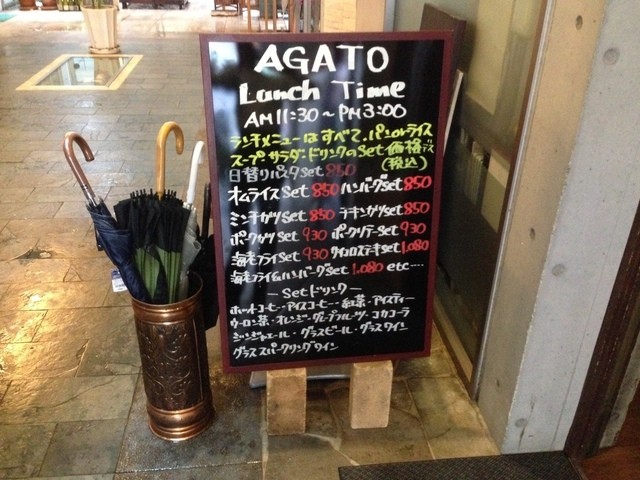 AGATO
Lunch Time
AM 11:30 ~ PM 3:00
ランチメニューはすべて、パンorライス
スープ・サラダ・ドリンクのSet価格です
(税込)
日替りパスタset 850
オムライスset 850 ハンバーグset 850
ミンチカツset 850 チキンカツset 850
ポークカツset 930 ポークソテーset 930
海老フライset 930 サイコロステーキset 1,080
海老フライ&ハンバーグset 1,080 etc....
ーSetドリンクー
ホットコーヒー・アイスコーヒー・紅茶・アイスティー
ウーロン茶・オレンジ・グレープフルーツ・コカコーラ
ジンジャエール・グラスビール・グラスワイン
グラススパークリングワイン